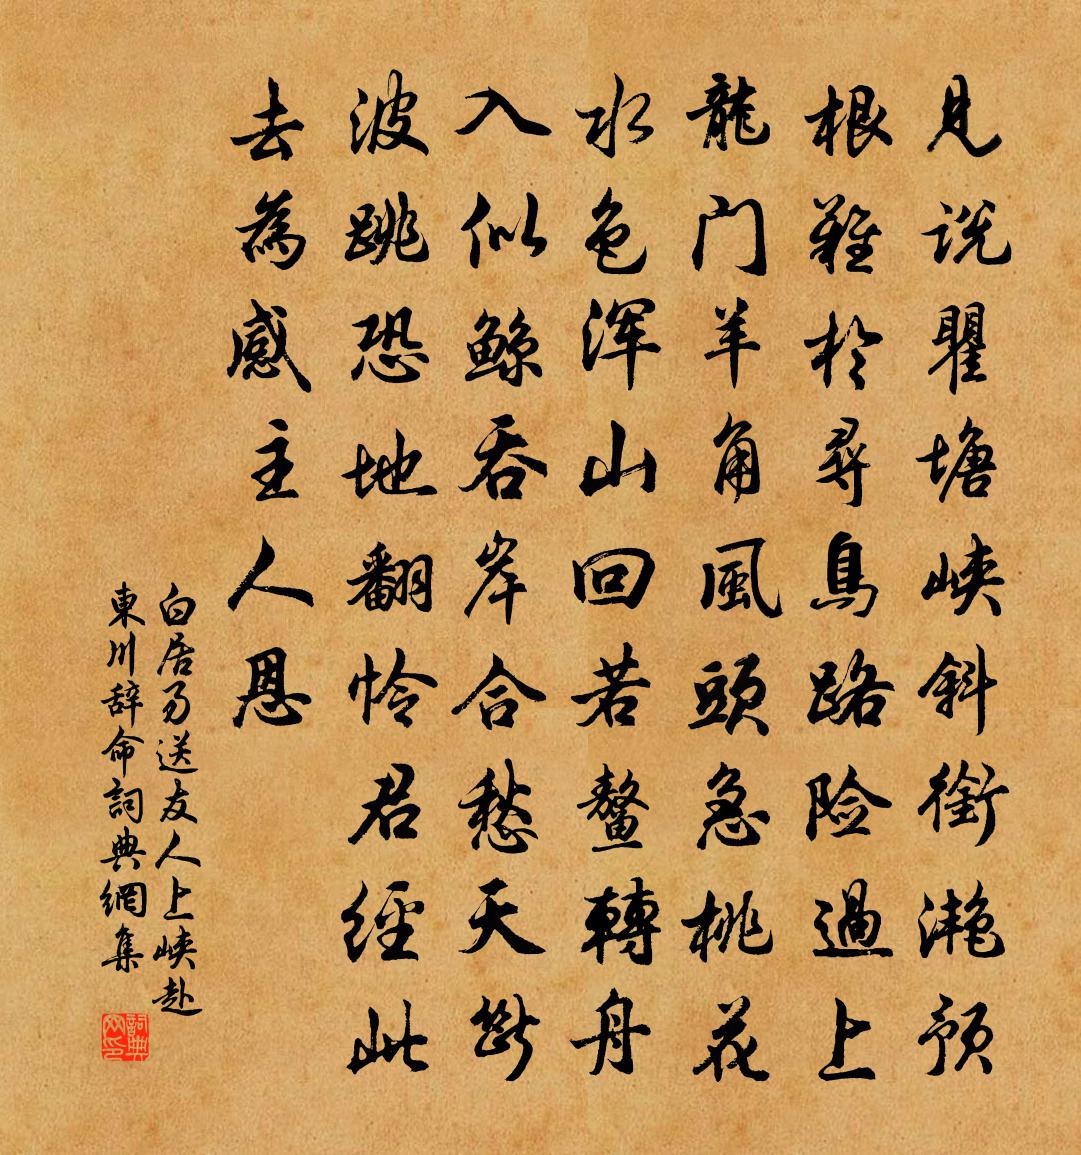 見説瞿塘峡斜銜灧预
根難於尋鳥路险過上
龍门羊角風頭急桃花
水色浑山回若鳌轉舟
入似鲸吞岸合愁天斷
波跳恐地翻怜君經此
去為感主人恩
白居易送友人上峡赴
東川辞命詞典網集
詞典网印